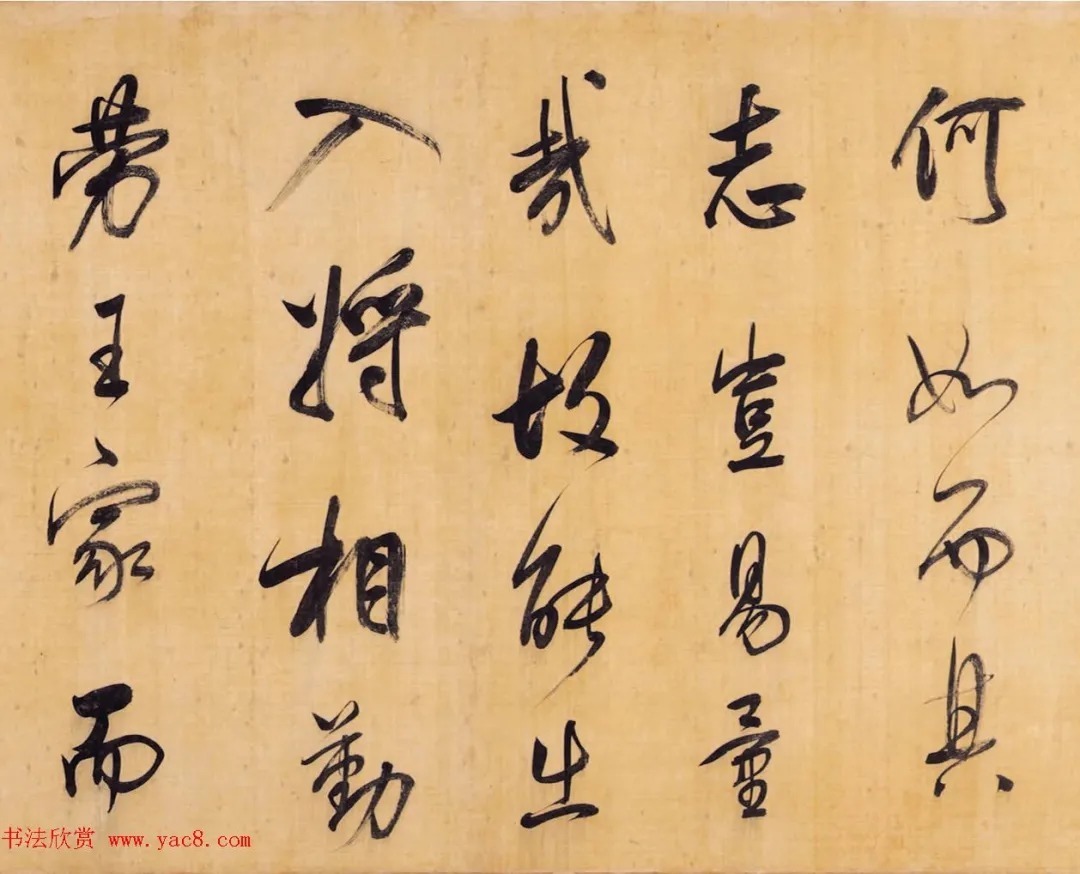 何如而其
志豈易量
哉故能出
入將相勤
勞王家而
书法欣赏 www.yac8.com